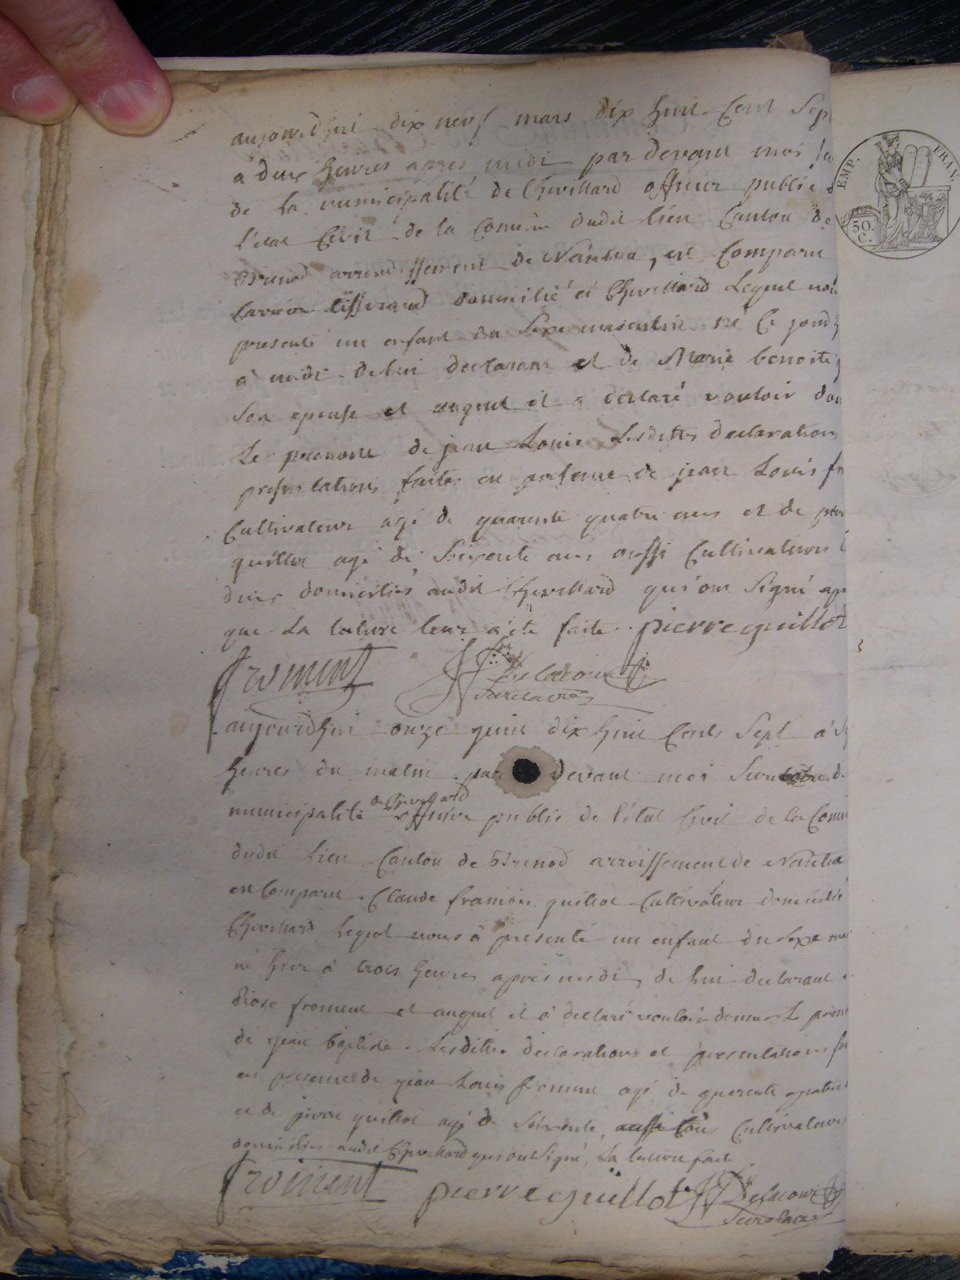 aujourdhui dix neuf mars dix huit Cent Sept
à deux heures apres midi par devant moi
de la municipalité de Chevillard officier public
l'etat Civil de la Comune dudit lieu Canton de
Brenod arrondissement de Nantua, est Comparu
tisserand domicilié à Chevillard Lequel nous
presenté un enfant du Sexe masculin né Ce jourd
à midi de lui declarant et de Marie benoite
Son epouse et auquel il a declaré vouloir don
Le prenom de jean Louis Lesdittes declarations
presentations faites en presence de jean Louis fr
Cultivateur agé de quarente quatre ans et de pier
guillot agé de Soixente ans aussi Cultivateurs
domiciliés audit Chevillard qui ont Signé apr
que La lecture leur a été faite. pierre guillot
froment Delacoux
aujourdhui onze juin dix huit Cents Sept à
heures du matin par devant moi
de Chevillard
municipalité officier public de l'état Civil de la Comu
dudit Lieu Canton de Brenod arroissement de Nantua
est Comparu Claude francois guillot Cultivateur domicilié
Chevillard lequel nous à presenté un enfant du Sexe mas
né hier à trois heures après midi de lui declarant
froment et auquel il à declaré vouloir donner Le preno
de jean baptiste. Lesdittes declarations et presentations
en presence de jean Louis froment agé de quarente quatre
et de pierre guillot agé de Soixente, aussi tous Cultivateurs
domiciliés audit Chevillard qui ont Signé, La lecture fait
froment pierre guillot Delacoux
EMP. FRAN.
50.
C.